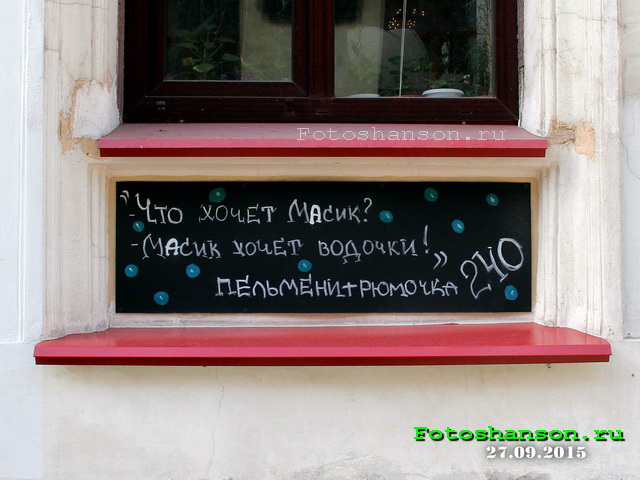 Fotoshanson.ru
"-Что хочет Масик?
-Масик хочет водочки!"
пельмени+рюмочка 240
Fotoshanson.ru
27.09.2015